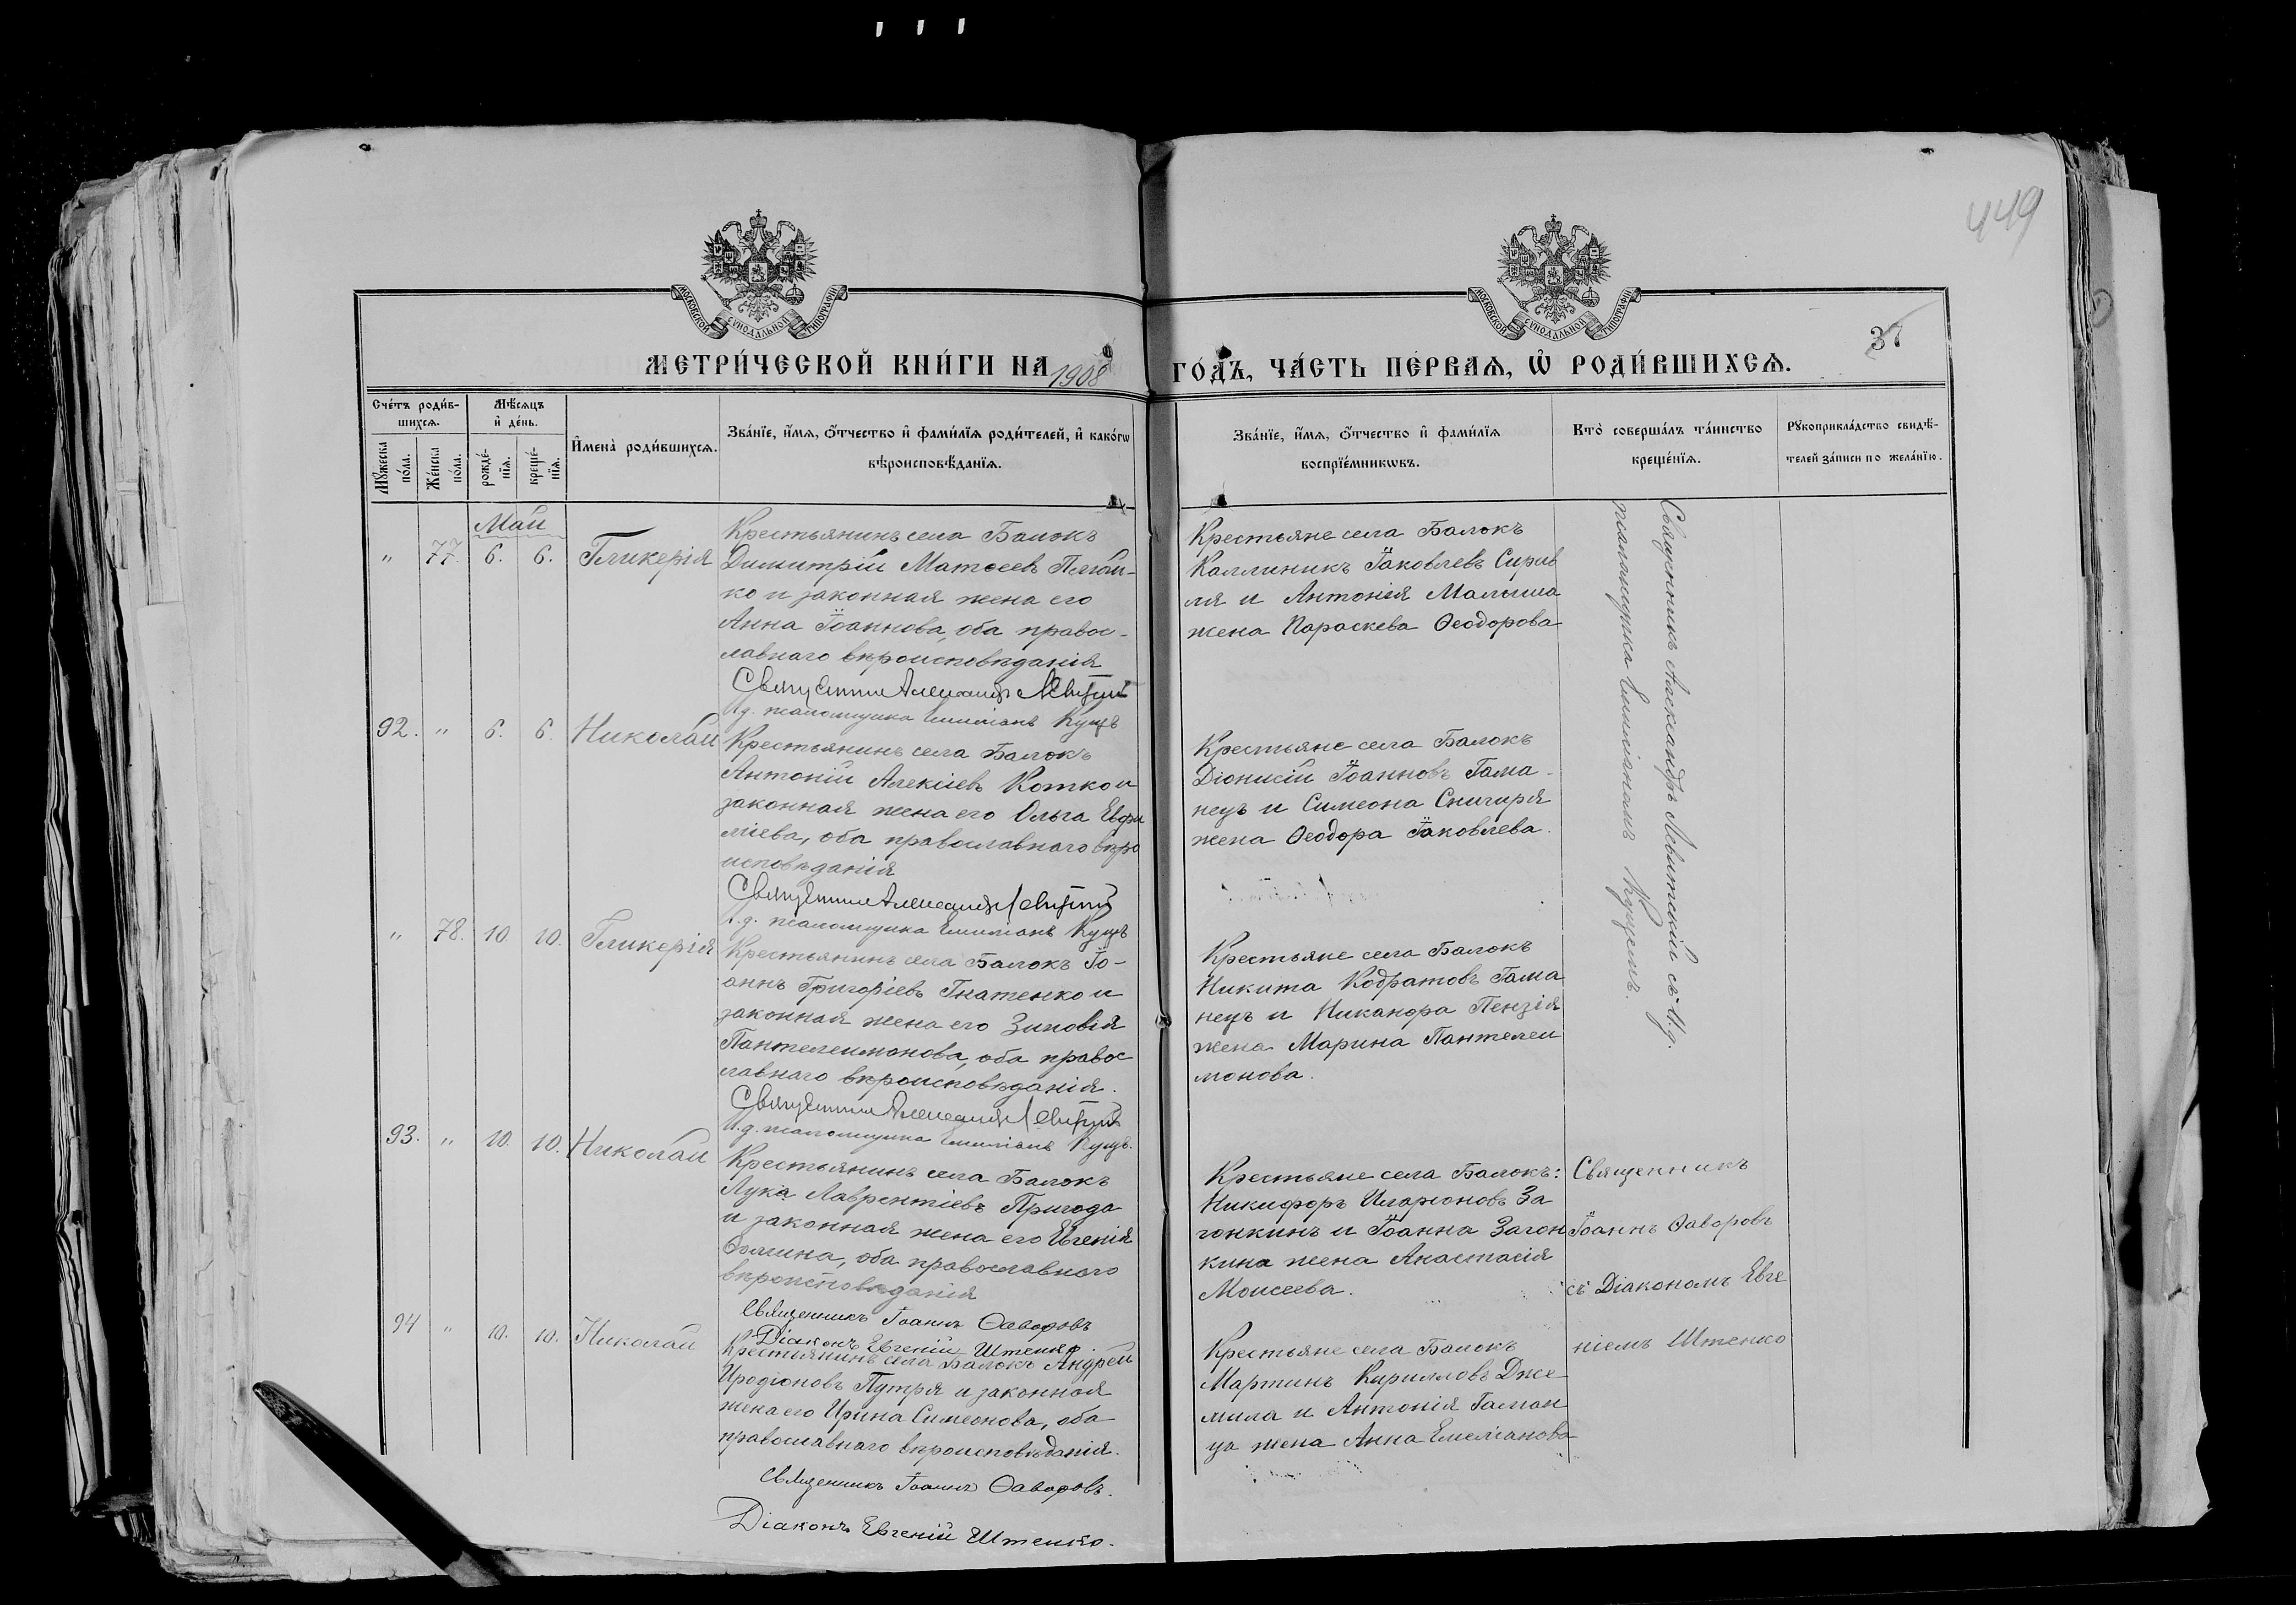 449
МОСКОВСКОЙ СУНОДАЛЬНОЙ ТИПОГРАФІИ
МОСКОВСКОЙ СУНОДАЛЬНОЙ ТИПОГРАФІИ
37
МЕТРИ́ЧЕСКОЙ КНИ́ГИ НА 1908 ГО́ДЪ, ЧА́СТЬ ПЕ́РВАѦ, Ѡ҆ РОДИ́ВШИХСѦ.
Сче́тъ роди́в-
шихсѧ.
Мѣ́сѧцъ
и҆ де́нь.
Мꙋ́жеска
по́ла.
Же́нска
по́ла.
рожде́-
нїѧ.
креще́-
нїѧ.
И҆мена̀ роди́вшихсѧ.
Зва́нїе, и҆́мѧ, ѻ҆́тчество и҆ фами́лїѧ роди́телей, и҆ како́гѡ
вѣроисповѣ́данїѧ.
Зва́нїе, и҆́мѧ, ѻ҆́тчество и҆ фами́лїѧ
воспрїе́мникѡвъ.
Кто̀ соверша́лъ та́инство
креще́нїѧ.
Рꙋкоприкла́дство свидѣ́-
телей за́писи по жела́нїю.
Май
" 77. 6. 6. Гликерія
Крестьянинъ села Балокъ
Димитрій Матѳеевъ
ко и законная жена его
Анна Іоаннова, оба правос-
лавнаго вѣроисповѣданія
Священникъ Александръ Левитскій
И.д. псаломщика Емиліанъ Кущъ
Крестьяне села Балокъ
Каллиникъ Іаковлевъ Сирив
ля и Антонія Малыша
жена Параскева Ѳеодорова
Священникъ Александръ Левитскій съ И.д.
псаломщика Емиліаномъ Кущемъ.
92. " 6. 6. Николай
Крестьянинъ села Балокъ
Антоній Алексіевъ Котко и
законная жена его Ольга Евфи
міева, оба православнаго вѣро
исповѣданія
Священникъ Александръ Левитскій
И.д. псаломщика Емиліанъ Кущъ
Крестьяне села Балокъ
Діонисій Іоанновъ Гама-
нецъ и Симеона Снигиря
жена Ѳеодора Іаковлева.
" 78. 10. 10. Гликерія
Крестьянинъ села Балокъ Іо-
аннъ Григоріевъ Гнатенко и
законная жена его Зиновія
Пантелеимонова, оба правос
лавнаго вѣроисповѣданія.
Священникъ Александръ Левитскій
И.д. псаломщика Емиліанъ Кущъ.
Крестьяне села Балокъ
Никита Кодратовъ Гама
нецъ и Никанора Пензія
жена Марина Пантелеи
монова.
93. " 10. 10. Николай
Крестьянинъ села Балокъ
Лука Лаврентіевъ Пригода
и законная жена его Евгенія
Ѳомина, оба православнаго
вѣроисповѣданія
Священникъ Іоаннъ Ѳаворовъ
Діаконъ Евгеній Штенко.
Крестьяне села Балокъ:
Никифоръ Иларіоновъ За
гонкинъ и Іоанна Загон
кина жена Анастасія
Моисеева.
Священникъ
Іоаннъ Ѳаворовъ
съ Діакономъ Евге
ніемъ Штенко
94 " 10. 10. Николай
Крестьянинъ села Балокъ Андрей
Иродіоновъ Путря и законная
жена его Ирина Симеонова, оба
православнаго вѣроисповѣданія.
Священникъ Іоаннъ Ѳаворовъ.
Діаконъ Евгеній Штенко.
Крестьяне села Балокъ
Мартинъ Кирилловъ Дже-
мила и Антонія Гаман
ца жена Анна Емеліанова